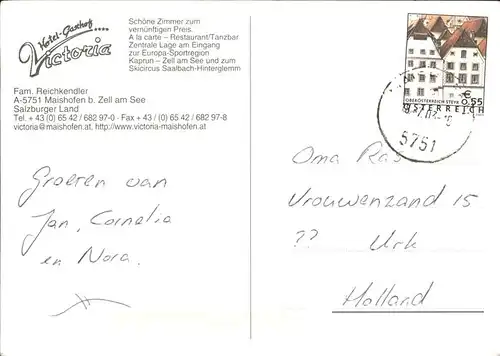 Hotel-Gasthof ****
Victoria
Schöne Zimmer zum
vernünftigen Preis.
A la carte – Restaurant/Tanzbar
Zentrale Lage am Eingang
zur Europa-Sportregion
Kaprun – Zell am See und zum
Skicircus Saalbach-Hinterglemm
Fam. Reichkendler
A-5751 Maishofen b. Zell am See
Salzburger Land
Tel. + 43 (0) 65 42 / 682 97-0 · Fax + 43 (0) 65 42 / 682 97-8
victoria@maishofen.at, http://www.victoria-maishofen.at
Groeten van
Jan, Cornelia
en Nora.
€
0,55
OBERÖSTERREICH STEYR
ÖSTERREICH
5751
Oma Ras
Vrouwenzand 15
?? Urk
Holland